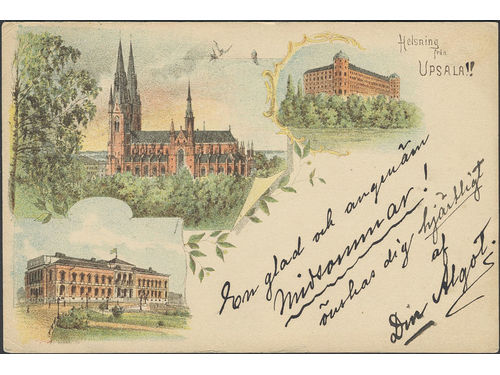 Helsning
från
UPSALA!!
En glad och angenäm
Midsommar!
önskas dig hjärtligt
af
Din Algot.